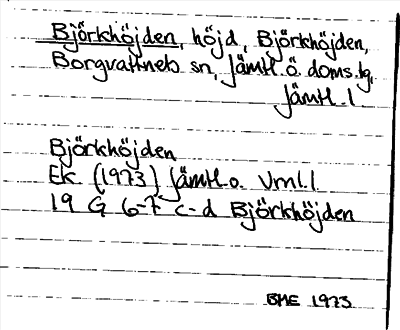 Björkhöjden, höjd, Björkhöjden,
Borgvattnets sn, Jämtl. ö. doms.lg,
Jämtl. l
Björkhöjden
Ek. (1973) Jämtl. o. Vrnl. l.
19 G 6-7 c-d Björkhöjden
BME 1973